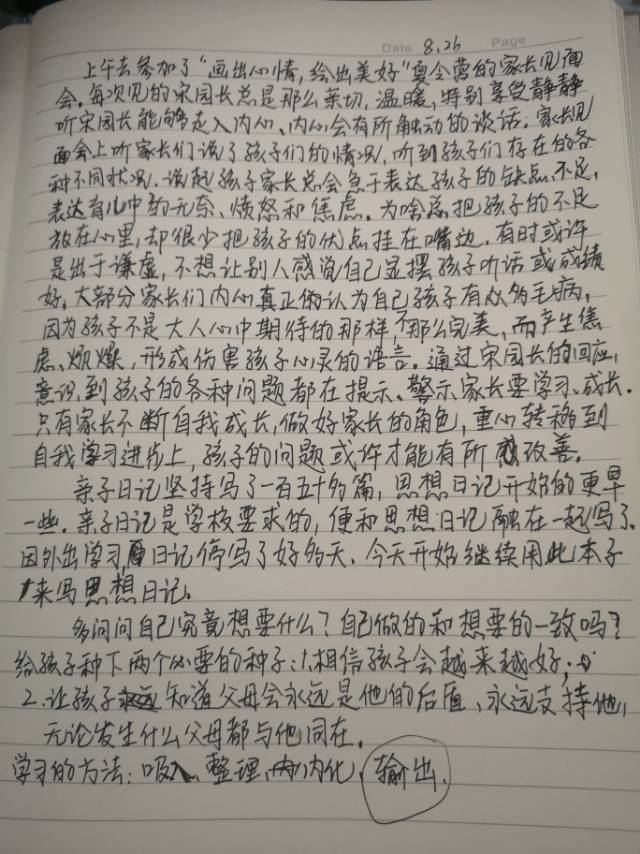 Date 8.26 Page
上午去参加了“画出心情,绘出美好”夏令营的家长见面
会。每次见的宋园长总是那么亲切,温暖,特别享受静静
听宋园长能够走入内心、内心会有所触动的谈话。家长见
面会上听家长们说了孩子们的情况,听到孩子们存在的各
种不同状况。说起孩子家长总会急于表达孩子的缺点、不足,
表达育儿中的无奈、愤怒和焦虑。为啥总把孩子的不足
放在心里,却很少把孩子的优点挂在嘴边。有时或许
是出于谦虚,不想让别人感觉自己显摆孩子听话或成绩
好。大部分家长们内心真正的认为自己孩子有众多毛病,
因为孩子不是大人心中期待的那样,不那么完美,而产生焦
虑、烦燥,形成伤害孩子心灵的语言。通过宋园长的回应,
意识到孩子的各种问题都在提示、警示家长要学习、成长.
只有家长不断自我成长,做好家长的角色,重心转移到
自我学习进步上,孩子的问题或许才能有所改善。
亲子日记坚持写了一百五十多篇,思想日记开始的更早
一些.亲子日记是学校要求的,便和思想日记融在一起写了.
因外出学习,日记停写了好多天.今天开始继续用此本子
来写思想日记.
多问问自己究竟想要什么?自己做的和想要的一致吗?
给孩子种下两个必要的种子:1.相信孩子会越来越好;
2.让孩子知道父母会永远是他的后盾、永远支持他,
无论发生什么父母都与他同在.
学习的方法:吸入、整理、内化、输出.